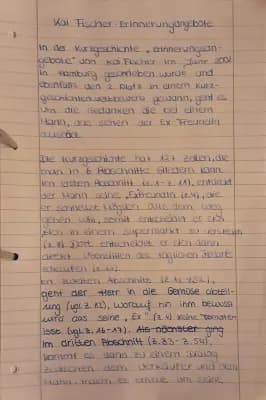 Kai Fischer - Erinnerungangebote
In der Kurzgeschichte „Erinnerungsan-
gebote" von Kai Fischer im Juni 2001
in Hamburg geschrieben wurde und
ebenfalls den 2. Platz in einem Kurz-
geschichtenwettbewerb gewann, geht es
um die Gedanken die bei einem
Mann, der seinen der Ex-Freundin
Die Kurzgeschichte hat 127 Zeilen, die
man in 6 Abschnitte gliedern kann.
Im ersten Abschnitt (z.1-z.11), entdeckt
der Mann seine „Exfreundin (z.4), die
er aus dem Weg
gehen will, somit entscheidet er sich
sich in einem Supermarkt zu verstecken
(z.8). Dort entscheidet er sich dann
direkt des täglichen Bedarfs
Im zweiten Abschnitt
geht der Herr in die Gemüse abteil-
ung (vgl. z.13), worauf hin ihm bewusst
wird das seine „Ex" (z.4) keine Tomaten
isst (vgl. z.16-17). Als nächster ging
im dritten Abschnitt (z.33-z.54),
kommt es dann zu einem Dialog
zwischen dem Verkäufer und dem
Mann, indem es um seine